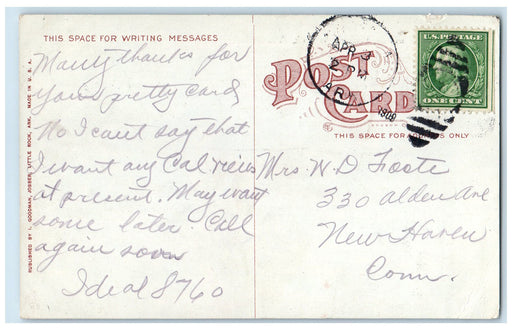 THIS SPACE FOR WRITING MESSAGES
Many thanks for
your pretty card
No I cant say that
I want any Cal views
at present. May want
some later. Call
again soon
Ideal 8760
PUBLISHED BY I. GOODMAN, JOBBER, LITTLE ROCK, ARK. MADE IN U.S.A.
POST
CARD
THIS SPACE FOR ONLY
APR 3
2 PM
ARK
1909
U.S. POSTAGE
ONE CENT
Mrs. W. D. Foote
330 Alden Ave
New Haven
Conn.